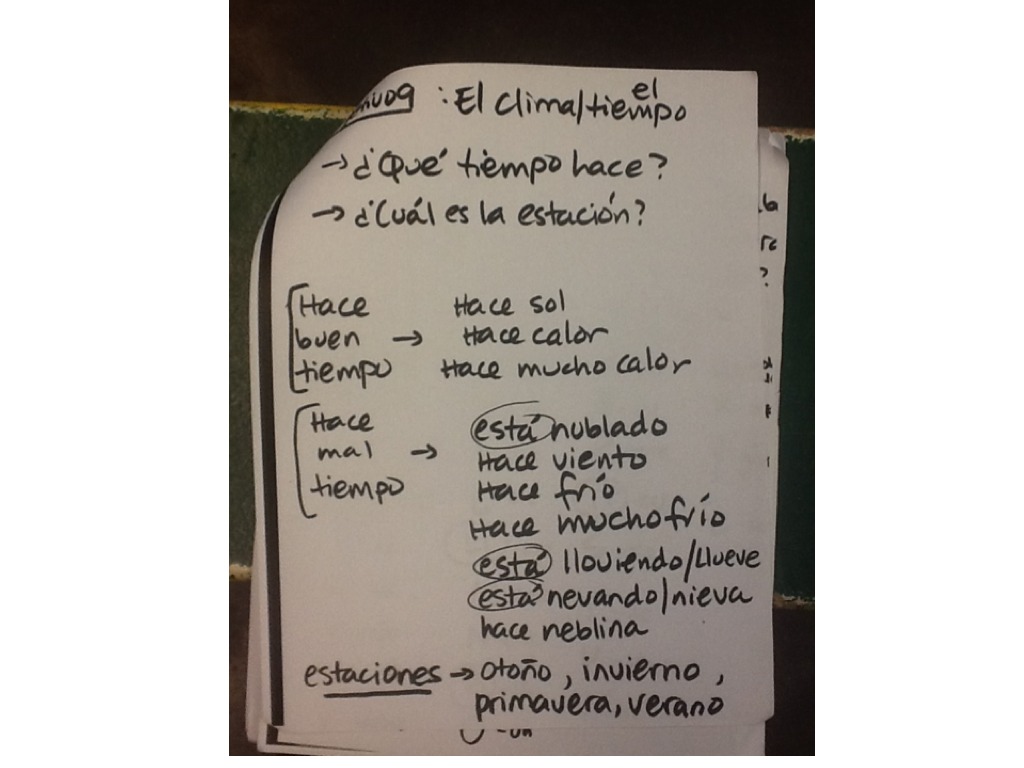 : El clima/el tiempo
→ ¿Qué tiempo hace?
→ ¿Cuál es la estación?
Hace
buen →
tiempo
Hace sol
Hace calor
Hace mucho calor
Hace
mal →
tiempo
está nublado
Hace viento
Hace frío
Hace mucho frío
está lloviendo/llueve
está nevando/nieva
hace neblina
estaciones → otoño, invierno,
primavera, verano